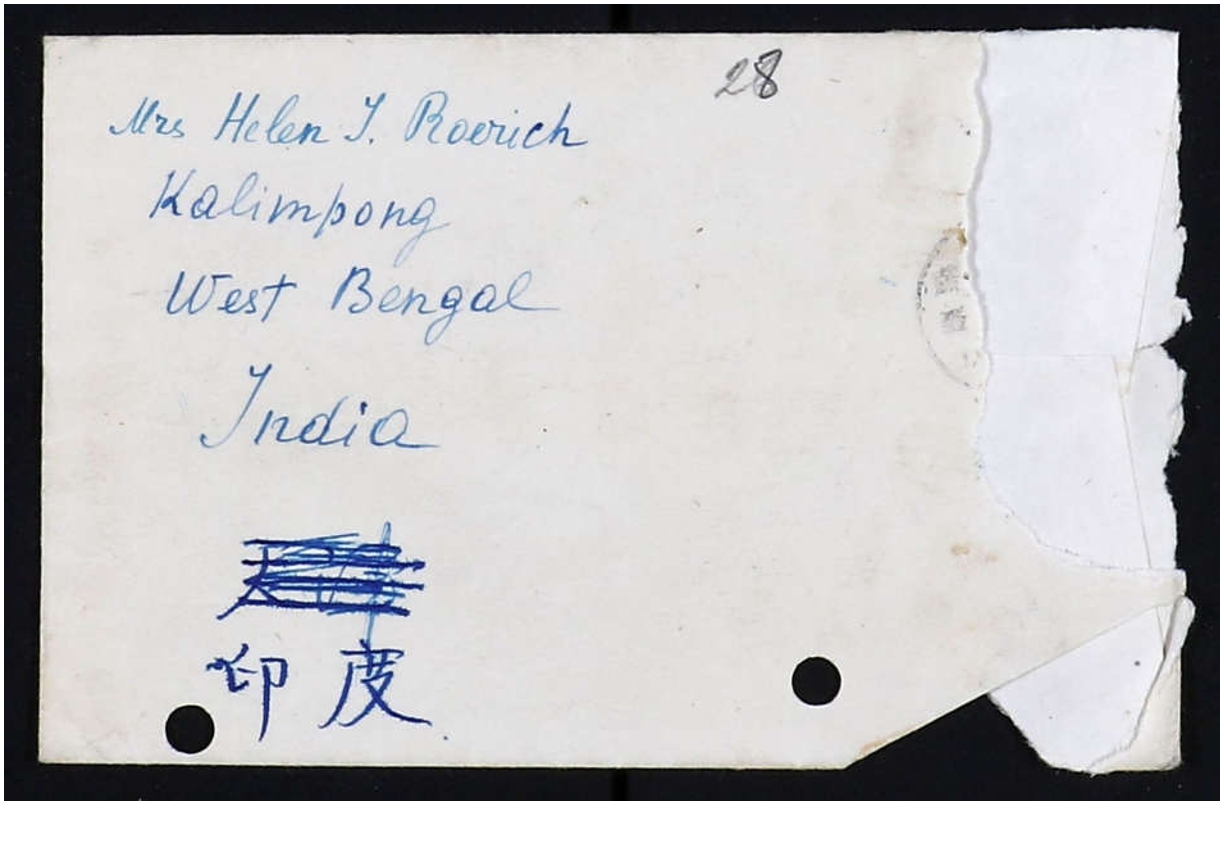 28
Mrs Helen I. Roerich
Kalimpong
West Bengal
India
印度